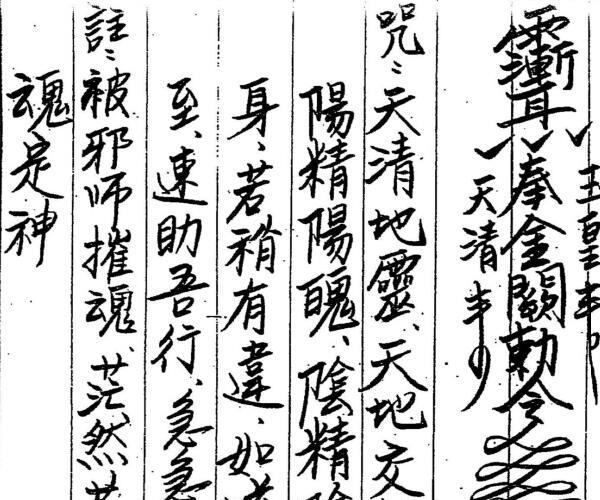 玉皇
奉金闕勅令
天清
咒:天清地靈、天地交
陽精陽魄、陰精陰
身、若稍有違、如
至、速助吾行、急急
註:被邪师摧魂、茫然
魂是神